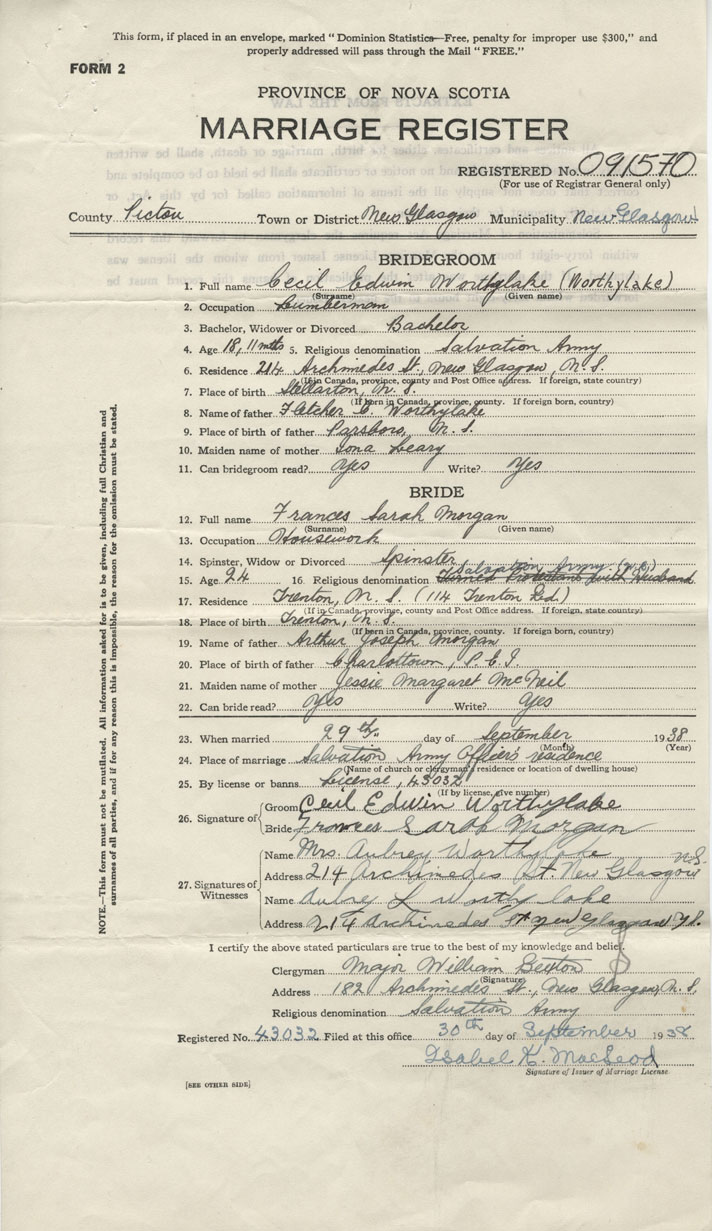 This form, if placed in an envelope, marked "Dominion Statistics—Free, penalty for improper use $300," and
properly addressed will pass through the Mail "FREE."
FORM 2
PROVINCE OF NOVA SCOTIA
MARRIAGE REGISTER
REGISTERED No. 091570
(For use of Registrar General only)
County Pictou Town or District New Glasgow Municipality New Glasgow
BRIDEGROOM
1. Full name Cecil Edwin Worthylake (Worthylake)
(Surname) (Given name)
2. Occupation Lumberman
3. Bachelor, Widower or Divorced Bachelor
4. Age 18, 11 mths 5. Religious denomination Salvation Army
6. Residence 214 Archimedes St., New Glasgow, N.S.
(If in Canada, province, county and Post Office address. If foreign, state country)
7. Place of birth Stellarton, N.S.
(If born in Canada, province, county. If foreign born, country)
8. Name of father Fletcher C. Worthylake
9. Place of birth of father Parsboro, N.S.
10. Maiden name of mother Iona Leary
11. Can bridegroom read? Yes Write? Yes
BRIDE
12. Full name Frances Sarah Morgan
(Surname) (Given name)
13. Occupation Housework
14. Spinster, Widow or Divorced Spinster
Salvation Army
15. Age 24 16. Religious denomination Turned Protestant with Husband
17. Residence Trenton, N.S. (114 Trenton Rd.)
(If in Canada, province, county and Post Office address. If foreign, state country)
18. Place of birth Trenton, N.S.
(If born in Canada, province, county. If foreign born, country)
19. Name of father Arthur Joseph Morgan
20. Place of birth of father Charlottown, P.E.I.
21. Maiden name of mother Jessie Margaret McNeil
22. Can bride read? Yes Write? Yes
23. When married 29th. day of September 1938
(Month) (Year)
24. Place of marriage Salvation Army Officer's residence
(Name of church or clergyman's residence or location of dwelling house)
25. By license or banns License, 43032
(If by license, give number)
26. Signature of Groom Cecil Edwin Worthylake
Bride Frances Sarah Morgan
27. Signatures of Witnesses
Name Mrs. Aubrey Worthylake
Address 214 Archimedes St. New Glasgow N.S.
Name Aubrey L Worthylake
Address 214 Archimedes St New Glasgow N.S.
I certify the above stated particulars are true to the best of my knowledge and belief.
Clergyman Major William Sexton
(Signature)
Address 182 Archimedes St., New Glasgow, N.S.
Religious denomination Salvation Army
Registered No. 43032 Filed at this office 30th day of September 1938
Isabel K. MacLeod
Signature of Issuer of Marriage License
[SEE OTHER SIDE]
NOTE.—This form must not be mutilated. All information asked for is to be given, including full Christian and
surnames of all parties, and if for any reason this is impossible, the reason for the omission must be stated.